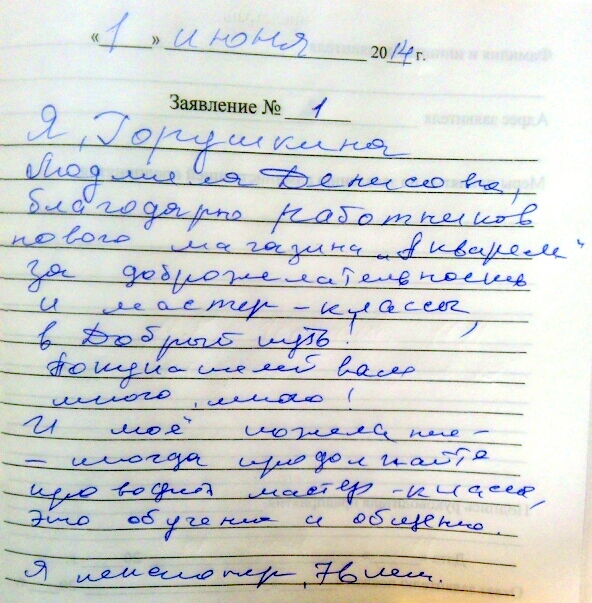 «1» июня 2014 г.
Заявление № 1
Я, Горушкина
Людмила Денисовна,
благодарю работников
нового магазина „Акварель"
за доброжелательность
и мастер-классы,
в Добрый путь!
Покупателей вам
много, много!
И моё пожелание-
- иногда продолжайте
проводить мастер-классы,
это обучения и общению.
Я пенсионер, 76 лет.